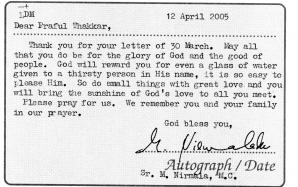 LDM
12 April 2005
Dear Praful Thakkar,
Thank you for your letter of 30 March. May all
that you do be for the glory of God and the good of
people. God will reward you for even a glass of water
given to a thirsty person in His name, it is so easy to
please Him. So do small things with great love and you
will bring the sunshine of God's love to all you meet.
Please pray for us. We remember you and your family
in our prayer.
God bless you,
Autograph / Date
Sr. M. Nirmala, M.C.